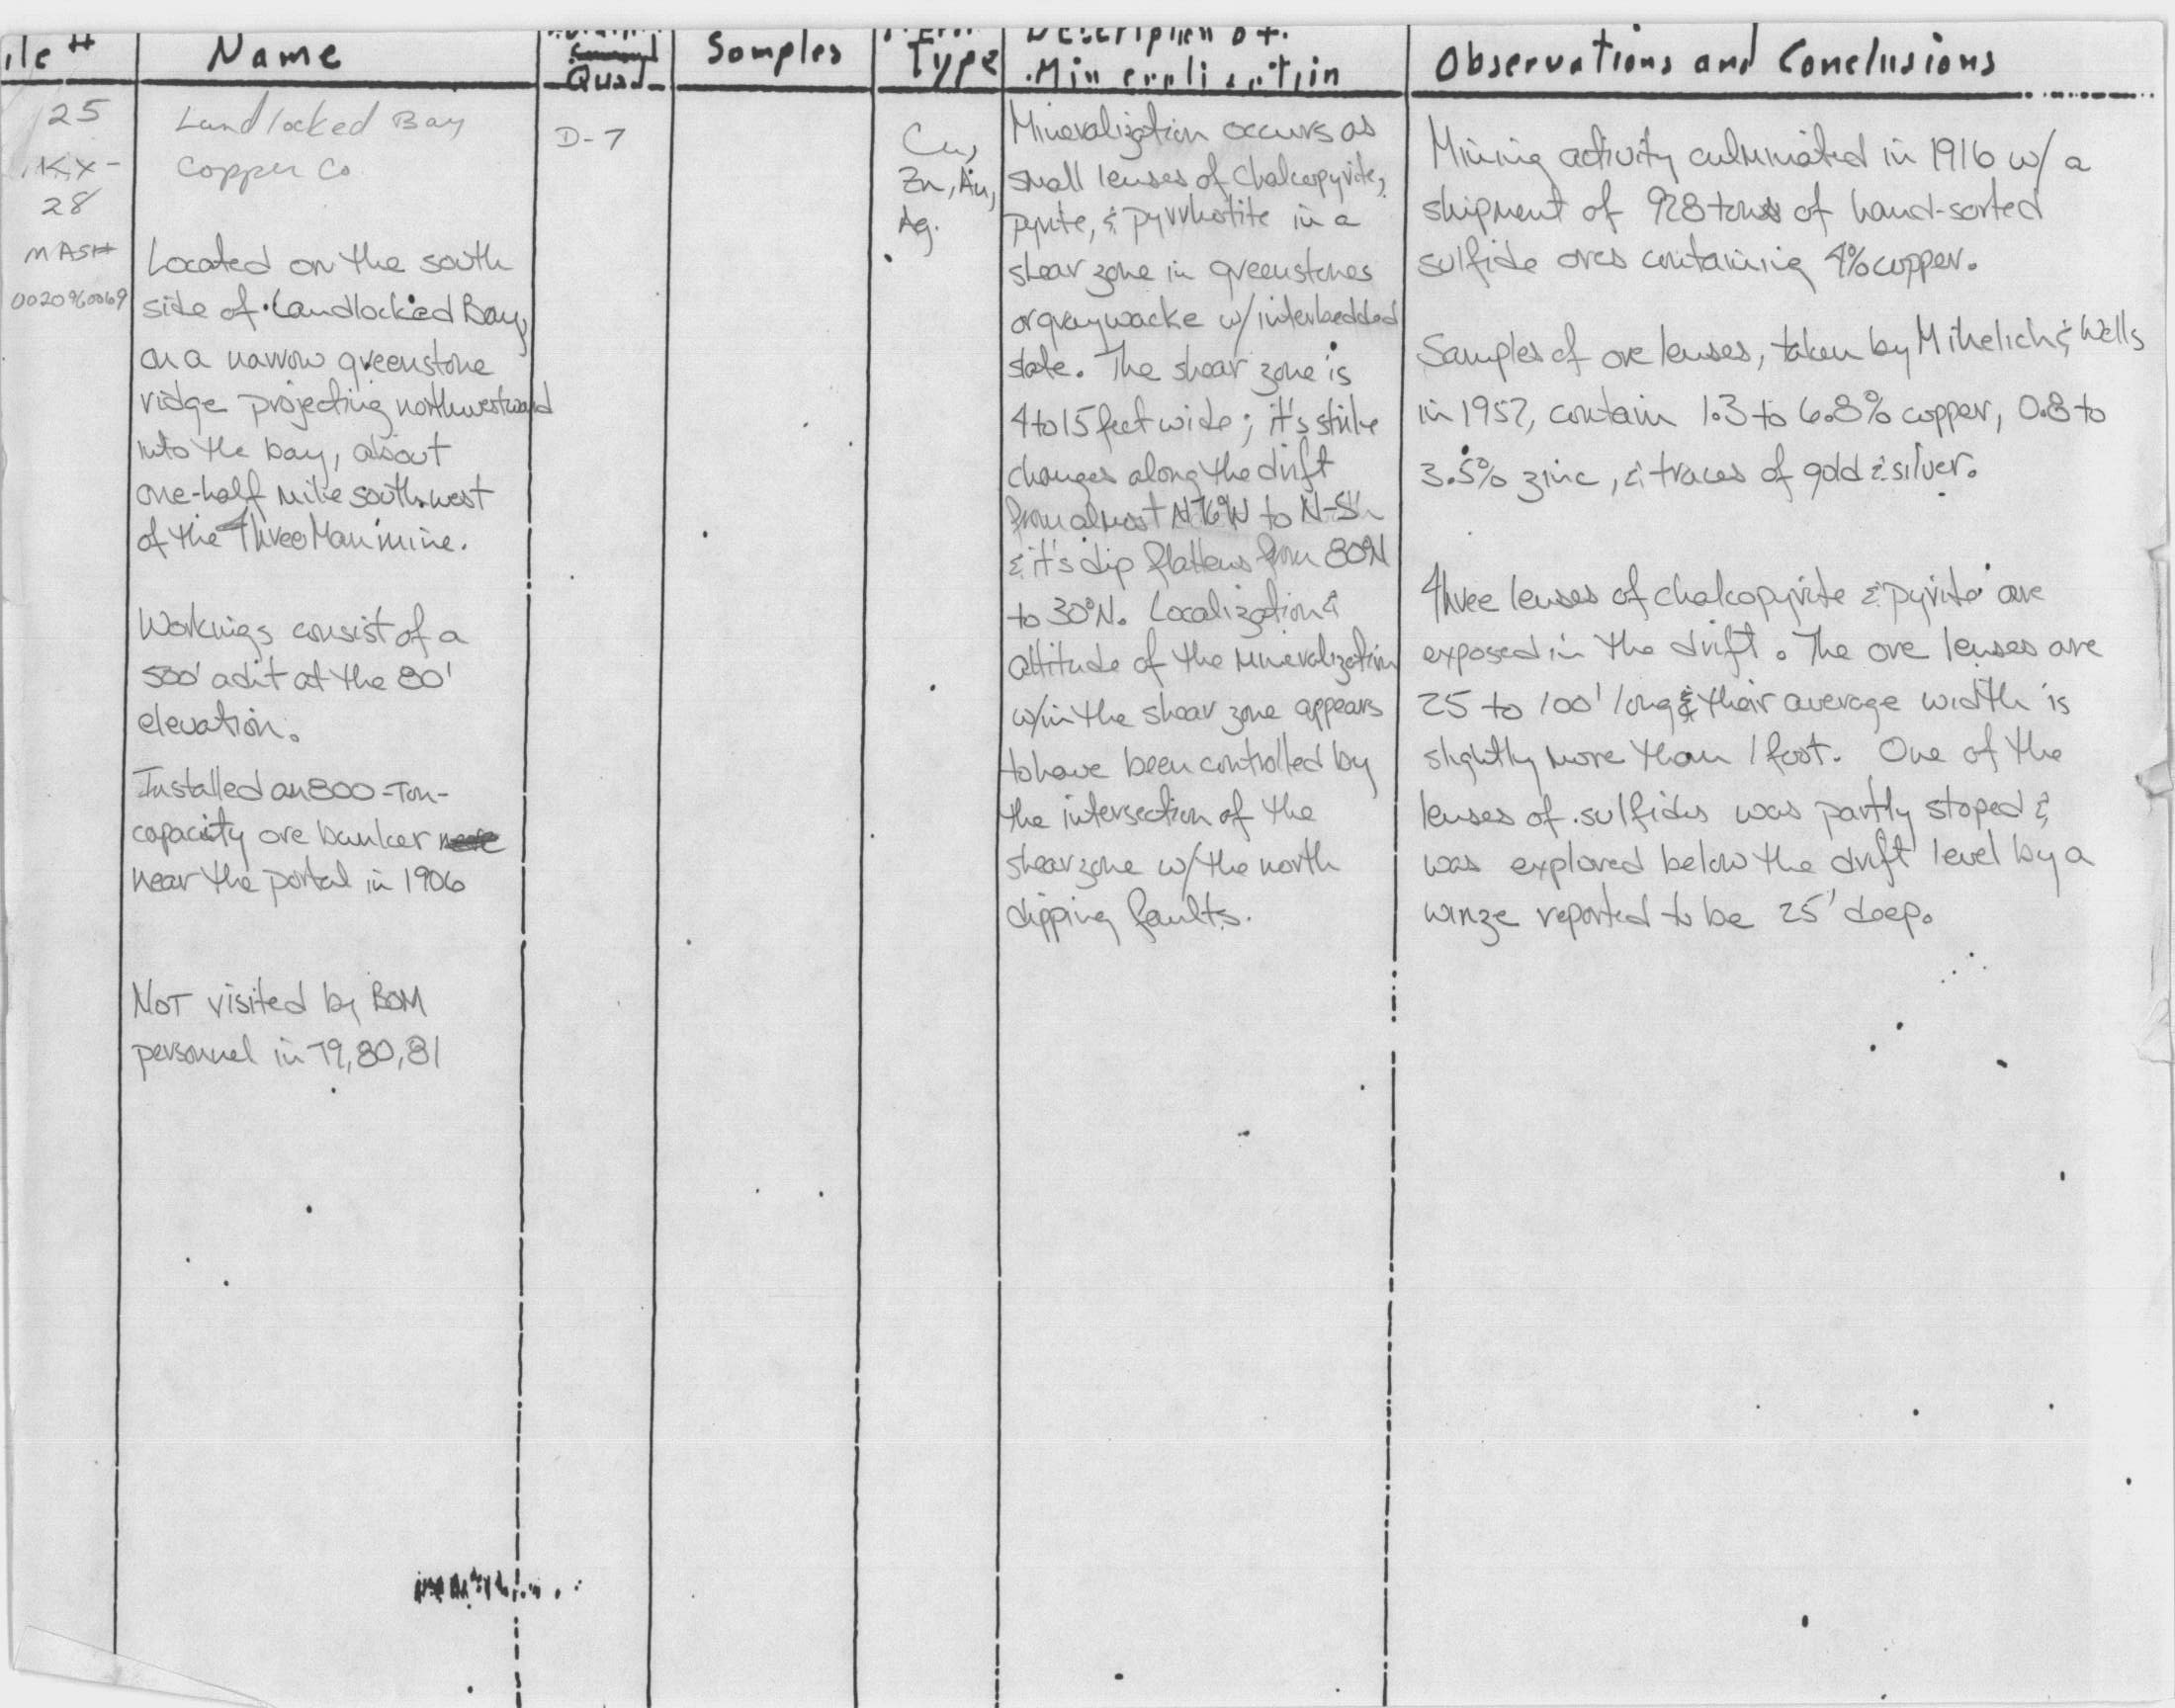 Name
Quad
Samples
Type
Description of
Mineralization
Observations and Conclusions
25
KX-
28
MAS#
0020960069
Landlocked Bay
Copper Co
Located on the south
side of Landlocked Bay,
on a narrow greenstone
ridge projecting northwestward
into the bay, about
one-half mile southwest
of the Three Man mine.
Workings consist of a
500' adit at the 80'
elevation.
Installed an 800-Ton-
capacity ore bunker
near the portal in 1906
NOT visited by BOM
personnel in 79,80,81
D-7
Cu,
Zn, Au,
Ag.
Mineralization occurs as
small lenses of chalcopyrite,
pyrite, & pyrrhotite in a
shear zone in greenstones
or graywacke w/interbedded
slate. The shear zone is
4 to 15 feet wide; it's strike
changes along the drift
from almost N76°W to
& it's dip flattens from 80°N
to 30°N. Localization &
attitude of the mineralization
w/in the shear zone appears
to have been controlled by
the intersection of the
shear zone w/the north
dipping faults.
Mining activity culminated in 1916 w/ a
shipment of 928 tons of hand-sorted
sulfide ores containing 4% copper.
Samples of ore lenses, taken by Mihelich & Wells
in 1957, contain 1.3 to 6.8% copper, 0.8 to
3.5% zinc, & traces of gold & silver.
Three lenses of chalcopyrite & pyrite are
exposed in the drift. The ore lenses are
25 to 100' long & their average width is
slightly more than 1 foot. One of the
lenses of sulfides was partly stoped &
was explored below the drift level by a
winze reported to be 25' deep.